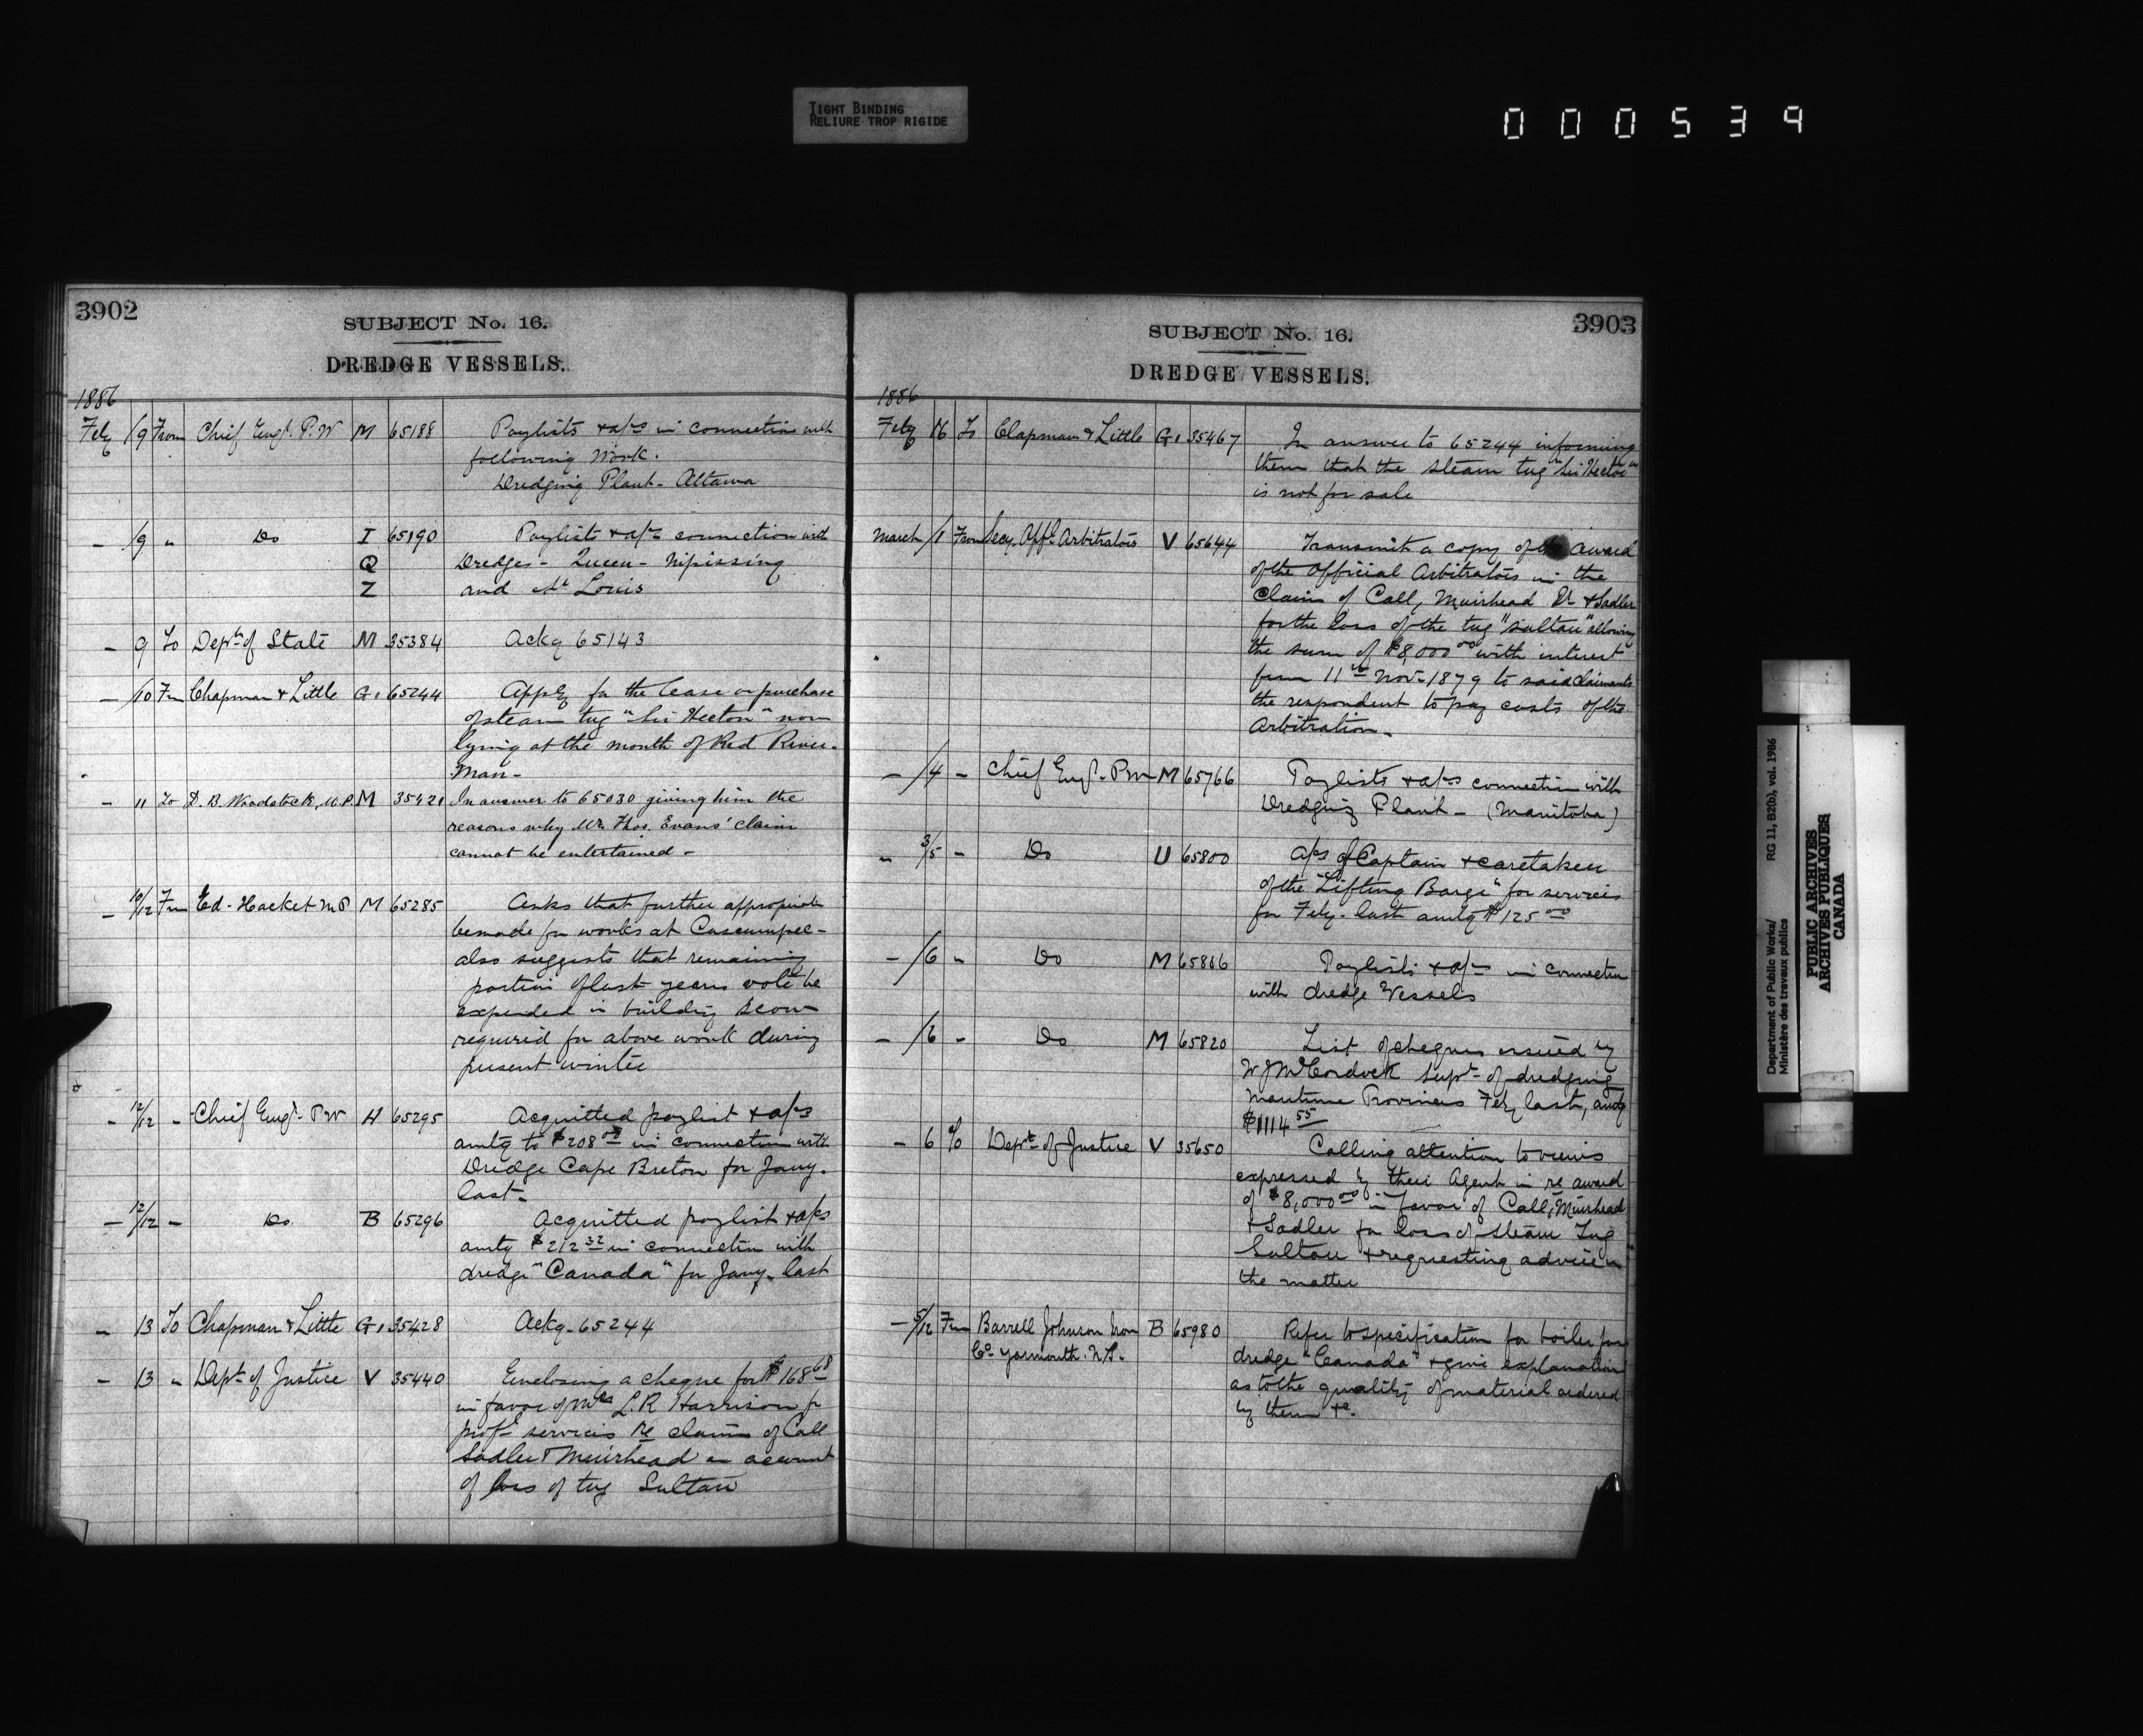 TIGHT BINDING
RELIURE TROP RIGIDE
000539
3902
SUBJECT No. 16.
DREDGE VESSELS.
1886
Feby /9 From Chief Engr. P.W M 65188 Paylists & a/cs in connection with
following Work.
Dredging Plant - Ottawa
- /9 " Do I 65190 Paylists & a/cs connection with
Q Dredges - Queen - Nipissing
Z and St Louis
- 9 To Dept of State M 35384 Ackg 65143
- /10 Fm Chapman & Little G1 65244 Apply for the lease or purchase
of steam tug "Sir Hector" now
lying at the mouth of Red River.
Man -
- 11 To D. B. Woodstock, M.P. M 35421 In answer to 65030 giving him the
reasons why Mr. Thos. Evans' claim
cannot be entertained -
- 10/12 Fm Ed - Hacket M.P M 65285 Asks that further appropriate
be made for works at Cascumpec -
also suggests that remaining
portion of last years vote be
expended in building scow
required for above work during
present winter
- 12/12 - Chief Engr - P.W H 65295 Acquitted paylist & a/cs
amtg to $208 in connection with
Dredge Cape Breton for Jany.
last -
- 12/12 - Do. B 65296 Acquitted paylist & a/cs
amtg $212 32 in connection with
dredge "Canada" for Jany. last
- 13 To Chapman & Little G1 35428 Ackg - 65244
- 13 " Dept of Justice V 35440 Enclosing a cheque for $168 68
in favor of L. R Harrison for
profl services re claim of Call
Sadler & Muirhead on account
of loss of tug Sultan
3903
SUBJECT No. 16.
DREDGE VESSELS.
1886
Feby 16 To Chapman & Little G1 35467 In answer to 65244 informing
them that the steam tug "Sir Hector"
is not for sale
March /1 From Secy. Offl. Arbitrators V 65644 Transmits a copy of award
of the Official Arbitrators in the
Claim of Call, Muirhead & Sadler
for the loss of the tug "Sultan" allowing
the sum of $8,000 00 with interest
from 11th Nov - 1879 to said claimants
the respondent to pay costs of the
Arbitration -
- /4 - Chief Engr - P.W - M 65766 Paylists & a/cs connection with
Dredging Plant - (Manitoba)
" 3/5 - Do U 65800 A/cs of Captain & caretaker
of the "Lifting Barge" for services
for Feby. last amtg $125 00
- /6 - Do M 65806 Paylists & a/cs in connection
with dredge Vessels
- /6 - Do M 65820 List of cheques issued by
W J McCordock Supt - of dredging
Maritime Provinces Feby last, amtg
$1114 55
- 6 To Dept of Justice V 35650 Calling attention to views
expressed by their Agent in re award
of $8,000 00 in favor of Call, Muirhead
& Sadler for loss of Steam Tug
Sultan & requesting advice in
the matter
- 5/12 Fm Burrell Johnson Iron B 65980 Refer to specification for boiler for
Co Yarmouth. N.S. dredge "Canada" & give explanation
as to the quality of material ordered
by them &c.
Department of Public Works/ RG 11, B2(b), vol. 1986
Ministère des travaux publics
PUBLIC ARCHIVES
ARCHIVES PUBLIQUES
CANADA